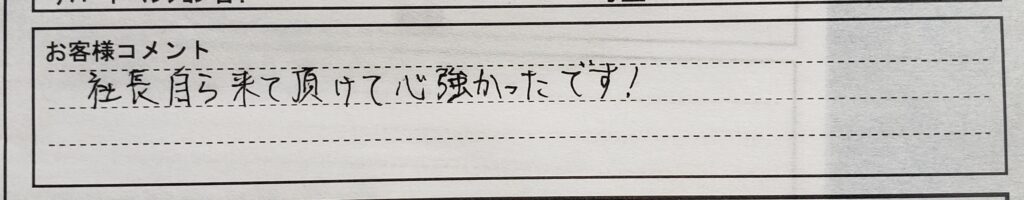 お客様コメント
社長自ら来て頂けて心強かったです!